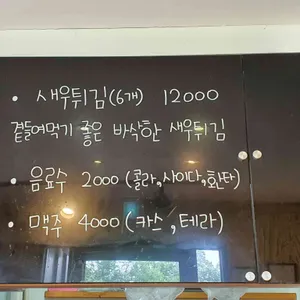 • 새우튀김(6개) 12000
곁들여먹기 좋은 바삭한 새우튀김
• 음료수 2000 (콜라,사이다,환타)
• 맥주 4000 (카스,테라)